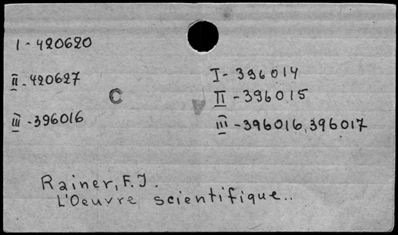 I - 420620
II - 420627
III - 396016
C
I - 396014
II - 396015
III - 396016, 396017
Rainer, F. J.
L'Oeuvre scientifique..